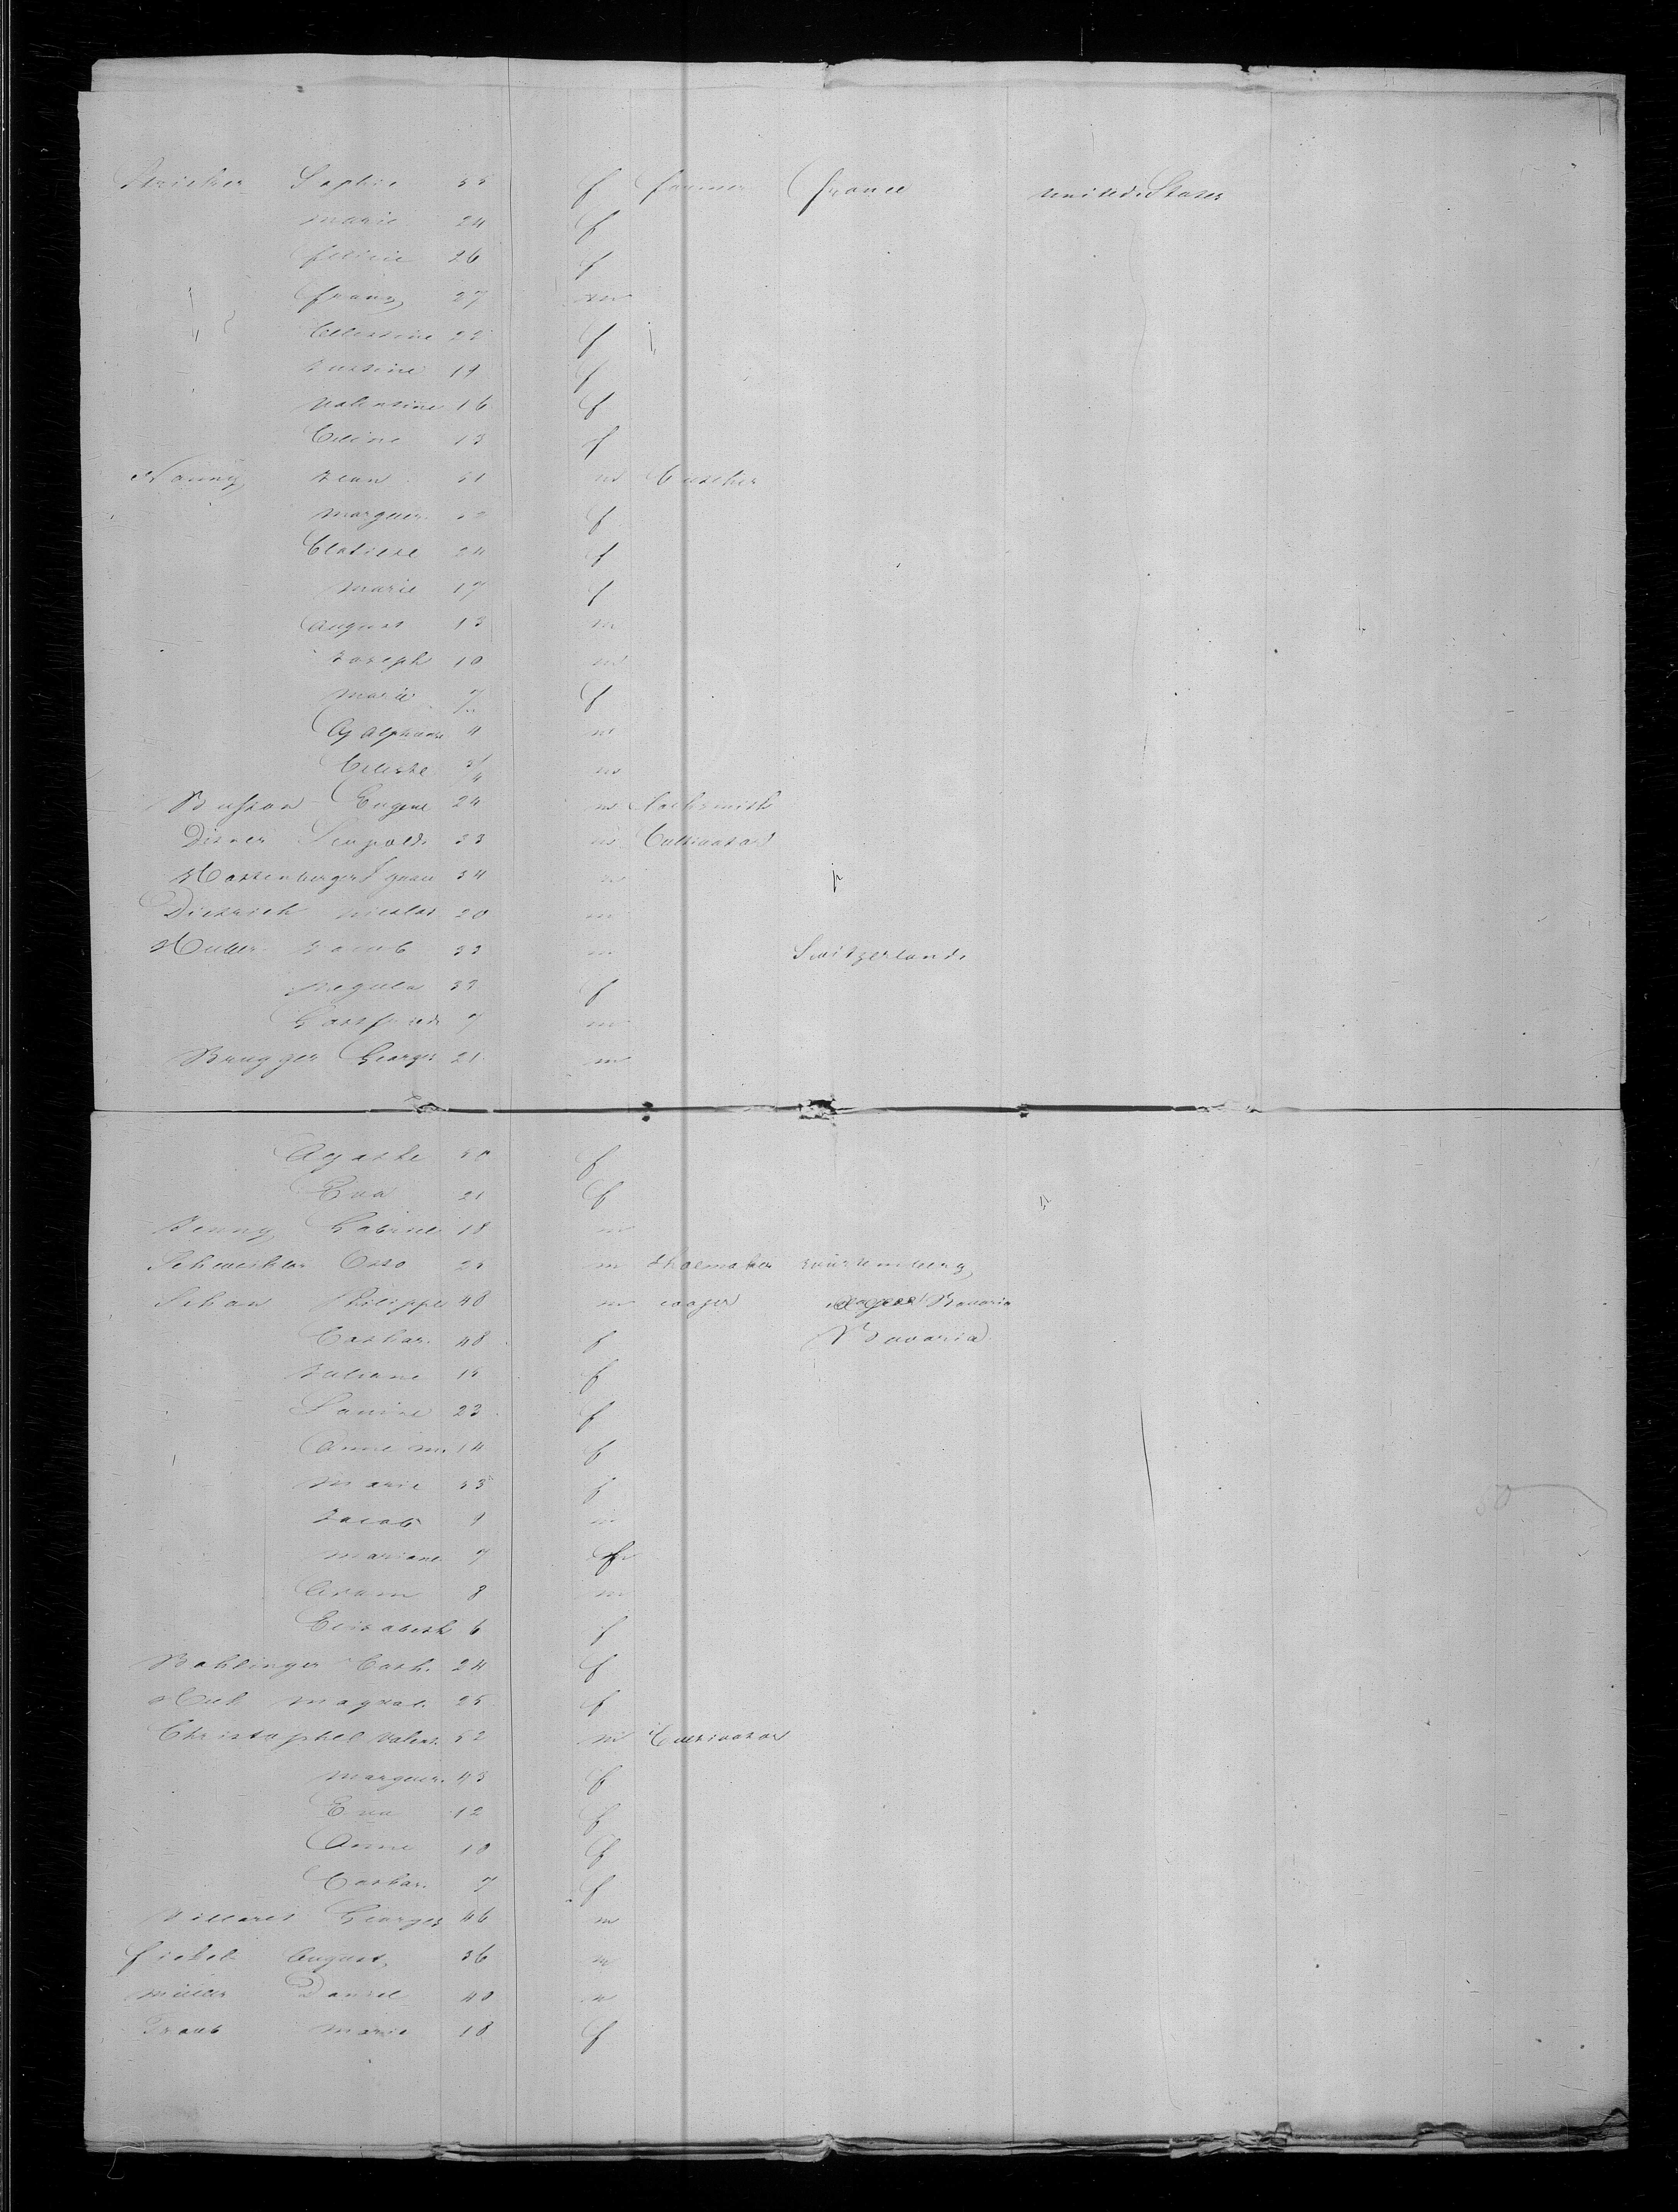 Stricker Sophie 55 f farmer france united States
marie 24 f
felicie 26 f
franz 27 m
Celestine 22 f
Justine 19 f
Valentine 16 f
Celine 13 f
Nanny Jean 51 m
marguer. f
24 f
marie 17 f
August 13 m
Joseph 10 m
marie 7 f
Alphonse 4 m
Celeste 3/4 m
Eugene 24 m Locksmith
Disner Leopold 33 m Cultivator
34 m
Dietrich nicolas 20 m
Muller Jacob 33 m Switzerland
Regula 32 f
Gottfried 7 m
Brugger Georges 21 m
Agathe 50 f
Eva 21 f
Jenny Gabriel 18 m
Otto 25 m Shoemaker Würtemberg
Schan Philippe 48 m Bavaria
Cathar. 48 f Bavaria
Juliane 15 f
Louise 23 f
Anne m. 14 f
Marie 33 f
Jacob 9 m
Mariane 7 f
Adam 8 m
Elisabeth 6 f
Bablinger Cath. 24 f
magdal. 25 f
Christophel Valent. 52 m Cultivator
marguer. 43 f
Eva 12 f
Anne 10 f
Cathar. 7 f
Georges 46 m
fickel August 36 m
müller Daniel 40 m
Traub marie 18 f